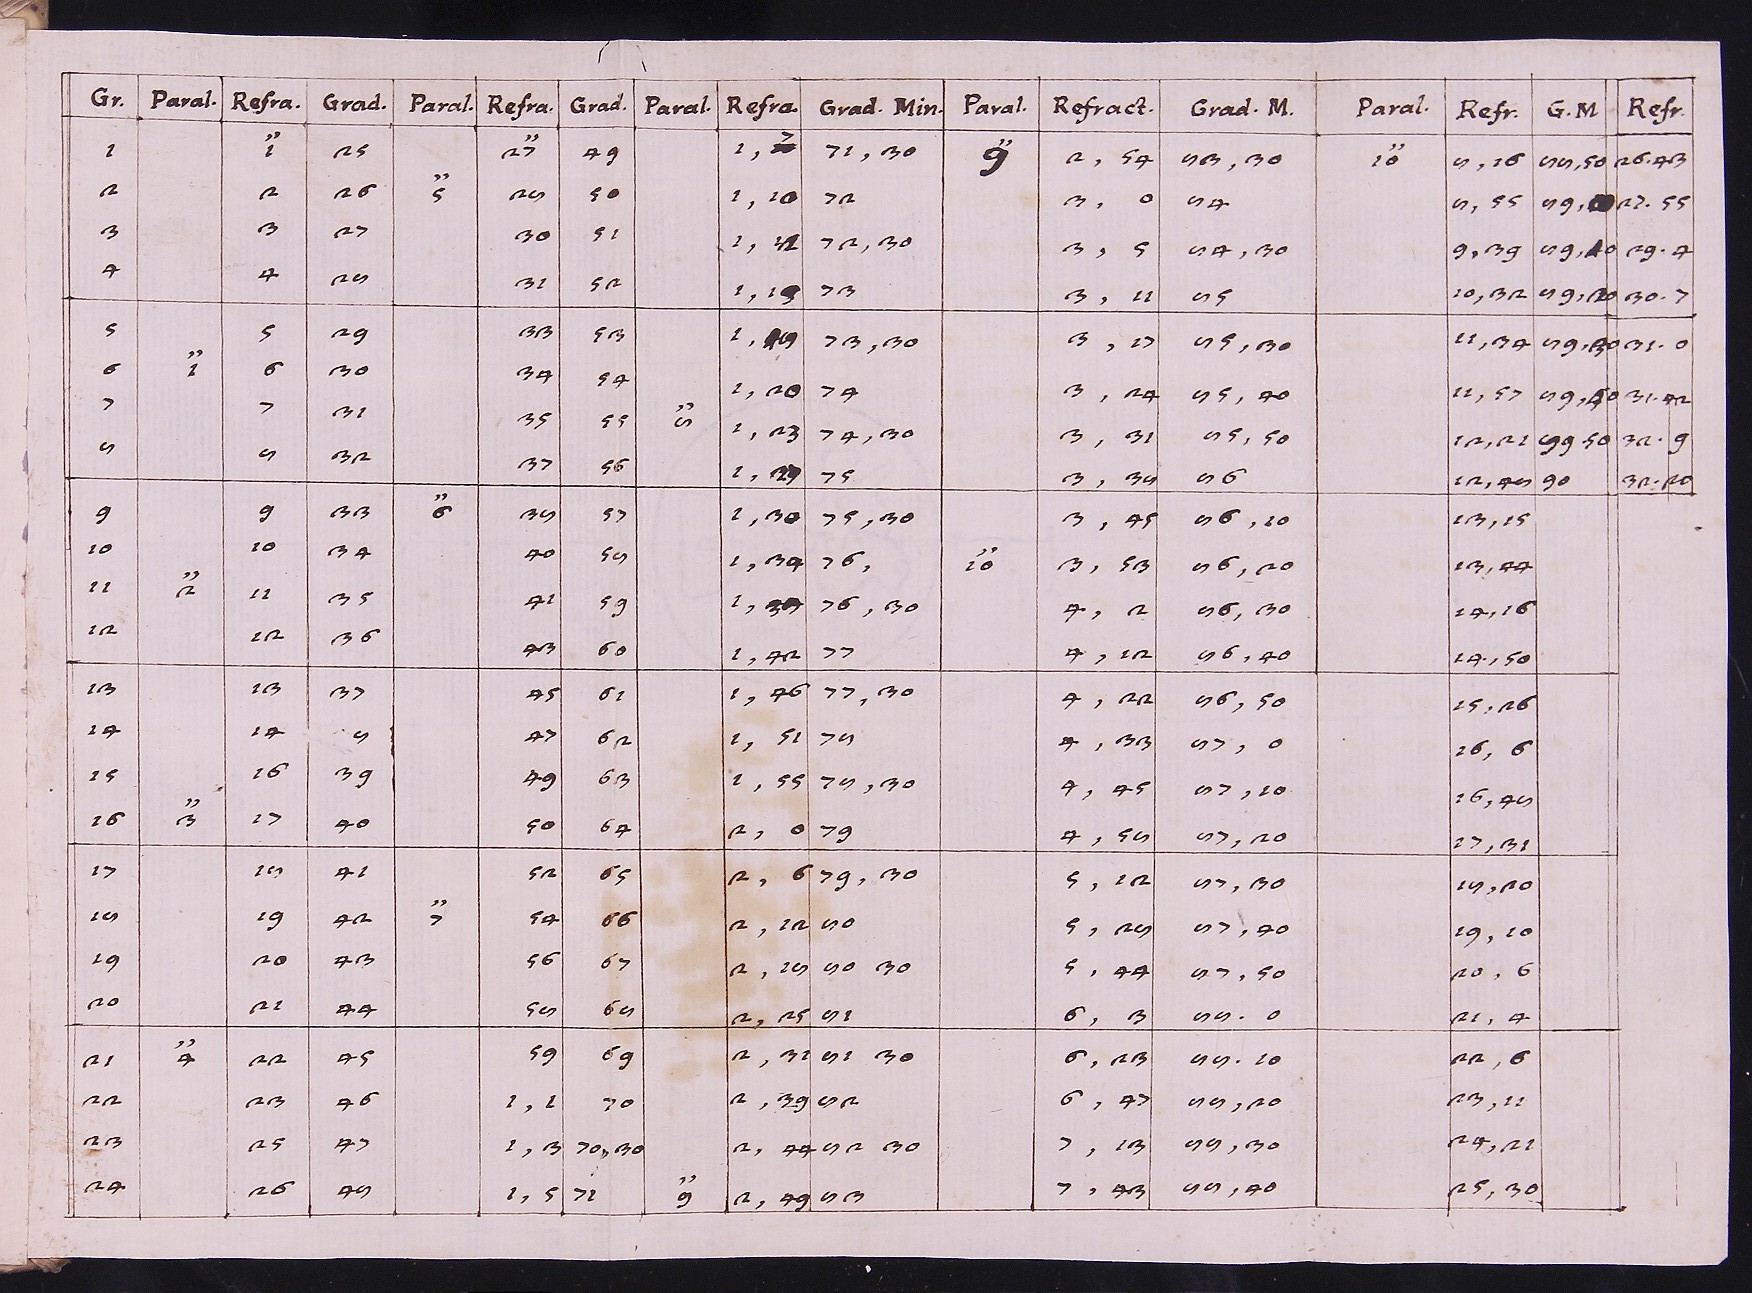 Gr. Paral. Refra. Grad. Paral. Refra. Grad. Paral. Refra. Grad. Min. Paral. Refract. Grad. M. Paral. Refr. G.M Refr.
1 1" 25 27" 49 1,7 71,30 9" 2,54 83,30 10" 8,16 88,50 26.43
2 2 26 5" 28 50 1,10 72 3,0 84 8,55 89, 27.55
3 3 27 30 51 1, 72,30 3,5 84,30 9,39 89,10 29.4
4 4 28 31 52 1, 73 3,11 85 10,32 89,20 30.7
5 5 29 33 53 1, 73,30 3,17 85,30 11,34 89,30 31.0
6 1" 6 30 34 54 1,20 74 3,24 85,40 11,57 89,40 31.42
7 7 31 35 55 8" 1,23 74,30 3,31 85,50 12,21 89.50 32.9
8 8 32 37 56 1,27 75 3,38 86 12,48 90 32.20
9 9 33 6" 38 57 1,30 75,30 3,45 86,10 13,15
10 10 34 40 58 1,34 76, 10" 3,53 86,20 13,44
11 2" 11 35 41 59 1, 76,30 4,2 86,30 14,16
12 12 36 43 60 1,42 77 4,12 86,40 14,50
13 13 37 45 61 1,46 77,30 4,22 86,50 15,26
14 14 8 47 62 1,51 78 4,33 87,0 16,6
15 16 39 49 63 1,55 78,30 4,45 87,10 16,48
16 3" 17 40 50 64 2,0 79 4,58 87,20 17,31
17 18 41 52 65 2,6 79,30 5,12 87,30 18,20
18 19 42 7" 54 66 2,12 80 5,28 87,40 19,10
19 20 43 56 67 2,18 80 30 5,44 87,50 20,6
20 21 44 58 68 2,25 81 6,3 88.0 21,4
21 4" 22 45 59 69 2,31 81 30 6,23 88.10 22,6
22 23 46 1,1 70 2,39 82 6,47 88,20 23,11
23 25 47 1,3 70,30 2,44 82 30 7,13 88,30 24,21
24 26 48 1,5 71 9" 2,49 83 7,43 88,40 25,30